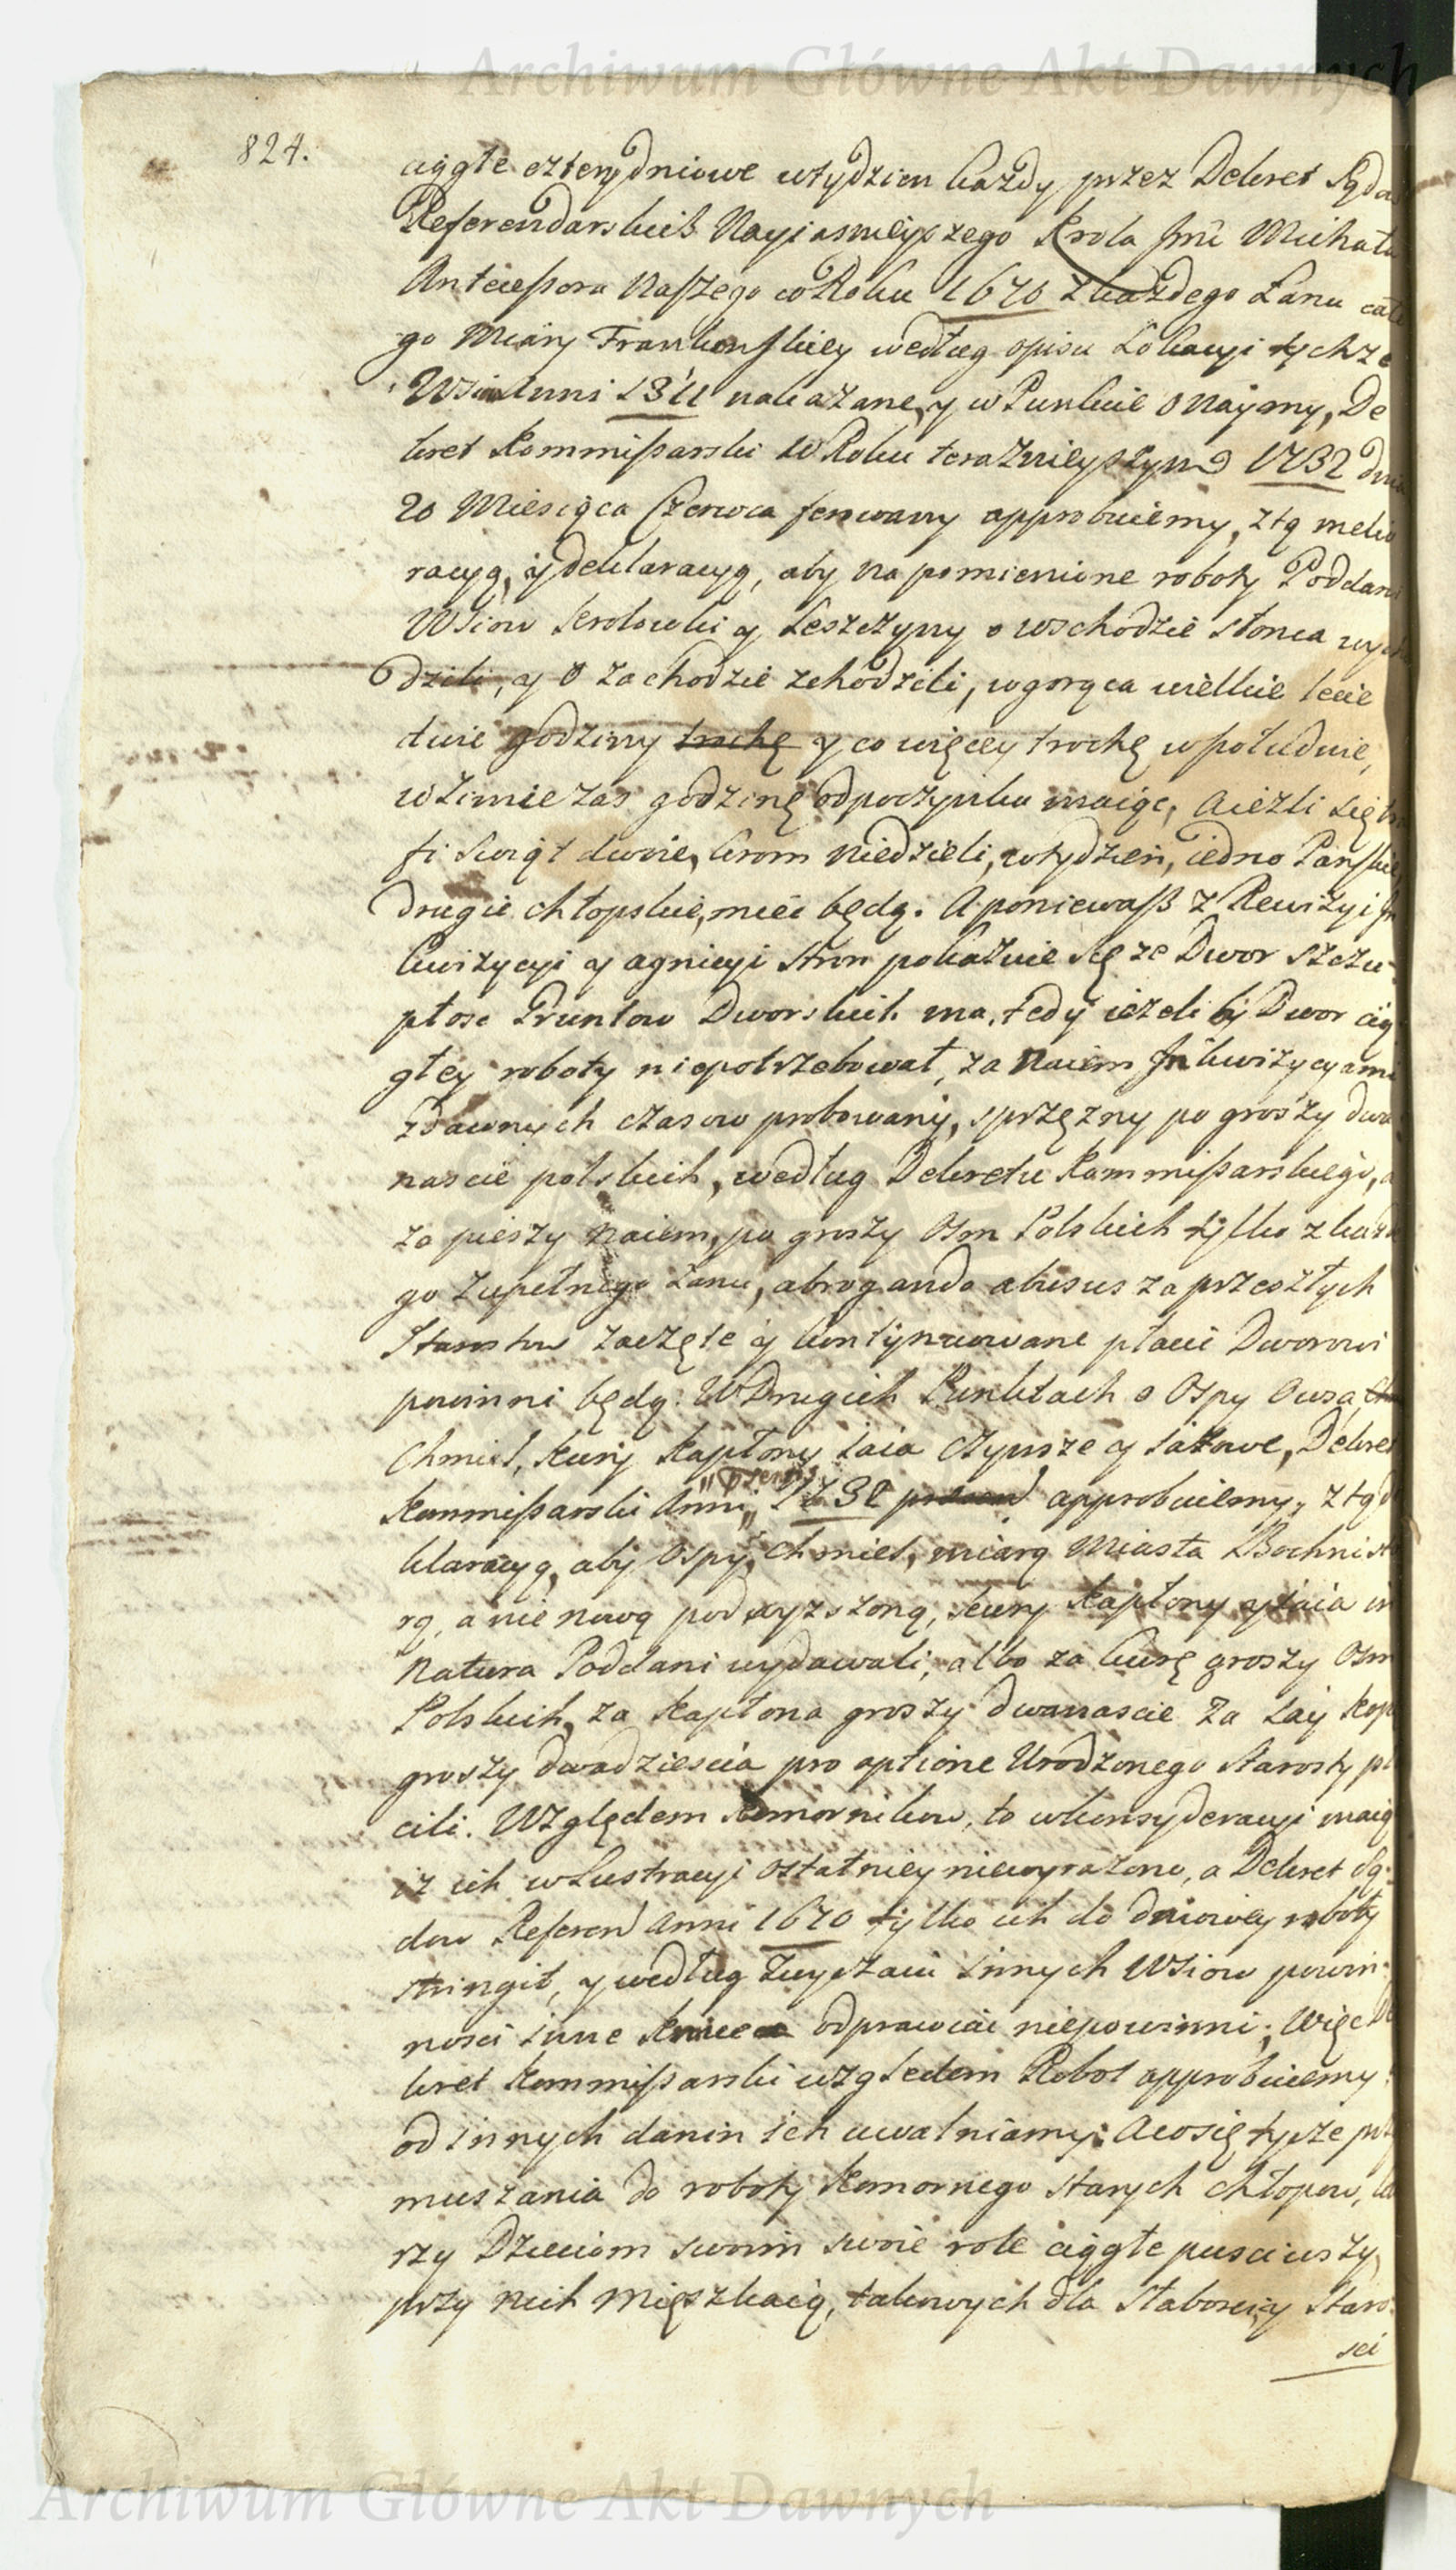 Archiwum Główne Akt Dawnych
824.
ciągłe czterydniowe wtydzien każdy przez Dekret Sąda
Referendarskich Nayiasnieyszego Krola Jmci Michała
Antecessora Naszego w Roku 1670 z każdego Łanu całe
go Miary Frankonskiey według opisu Lokacyi tychże
Wsi Anni nakazane, y w Punkcie o Naymy, De
kret Kommissarski w Roku teraznieyszym 1732 dnia
20 Miesiąca Czerwca ferowany approbuiemy, z tą melio
racyą, y deklaracyą, aby na pomienione roboty Poddani
Wsiow Krolowki y Leszczyny o wschodzie słonca wycho
dzili, y o zachodzie zchodzili, w gorąca wielkie lecie
dwie godziny trochę y co więcey trochę w południe,
w zimie zas godzinę odpoczynku maiąc, a ieżli się tra
fi swiąt dwoie, krom niedzieli, w tydzień, iedno Panskie
drugie chłopskie, mieć będą. A poniewasz z Rewizyi In
kwizycyi y agnicyi stron pokazuie się ze Dwor szczu-
płosc Gruntow Dworskich ma, tedy ieżeliby Dwor cią
głey roboty niepotrzebował, za naiem Inkwizycyami
z dawnych czasow probowany, sprzężny po groszy dwa
nascie polskich, według Dekretu Kommissarskiego, a
za pieszy naiem, po groszy osm Polskich tylko z każde
go zupełnego Łanu, abrogando abusus za przeszłych
Starostw zaczęte y kontynuowane płacić Dworowi
powinni będą. W Drugich Punktach o Ospy Owsa,
Chmiel, kury kapłony iaia czynsze y iałowe, Dekret
Kommissarski Anni 1732 approbuiemy, z tą de
klaracyą, aby Ospy, chmiel, miarą Miasta Bochni sta
rą, a nie nową podwyższoną, kury kapłony y iaia in
Natura Poddani wydawali, albo za kurę groszy osm
Polskich, za kapłona groszy dwanascie za iay kopę
groszy dwadziescia pro optione Urodzonego Starosty pł
cili. Względem Komornikow, to w konsyderacyi maiąc
iz ich w Lustracyi ostatniey niewyrażono, a Dekret Są-
dow Referend Anni 1670 tylko ich do dniowey roboty
stringit, y według zwyczaiu innych Wsiow powin-
nosci inne odprawiać niepowinni; Więc De
kret Kommissarski względem Robot approbuiemy
od innych danin ich uwalniamy. A co się tycze przy
muszania do roboty Komornego starych chłopow, kto
rzy Dzieciom swoim swoie role ciągłe pusciwszy,
przy nich mięszkaią, takowych dla słabosci y Staro-
sci
Archiwum Główne Akt Dawnych